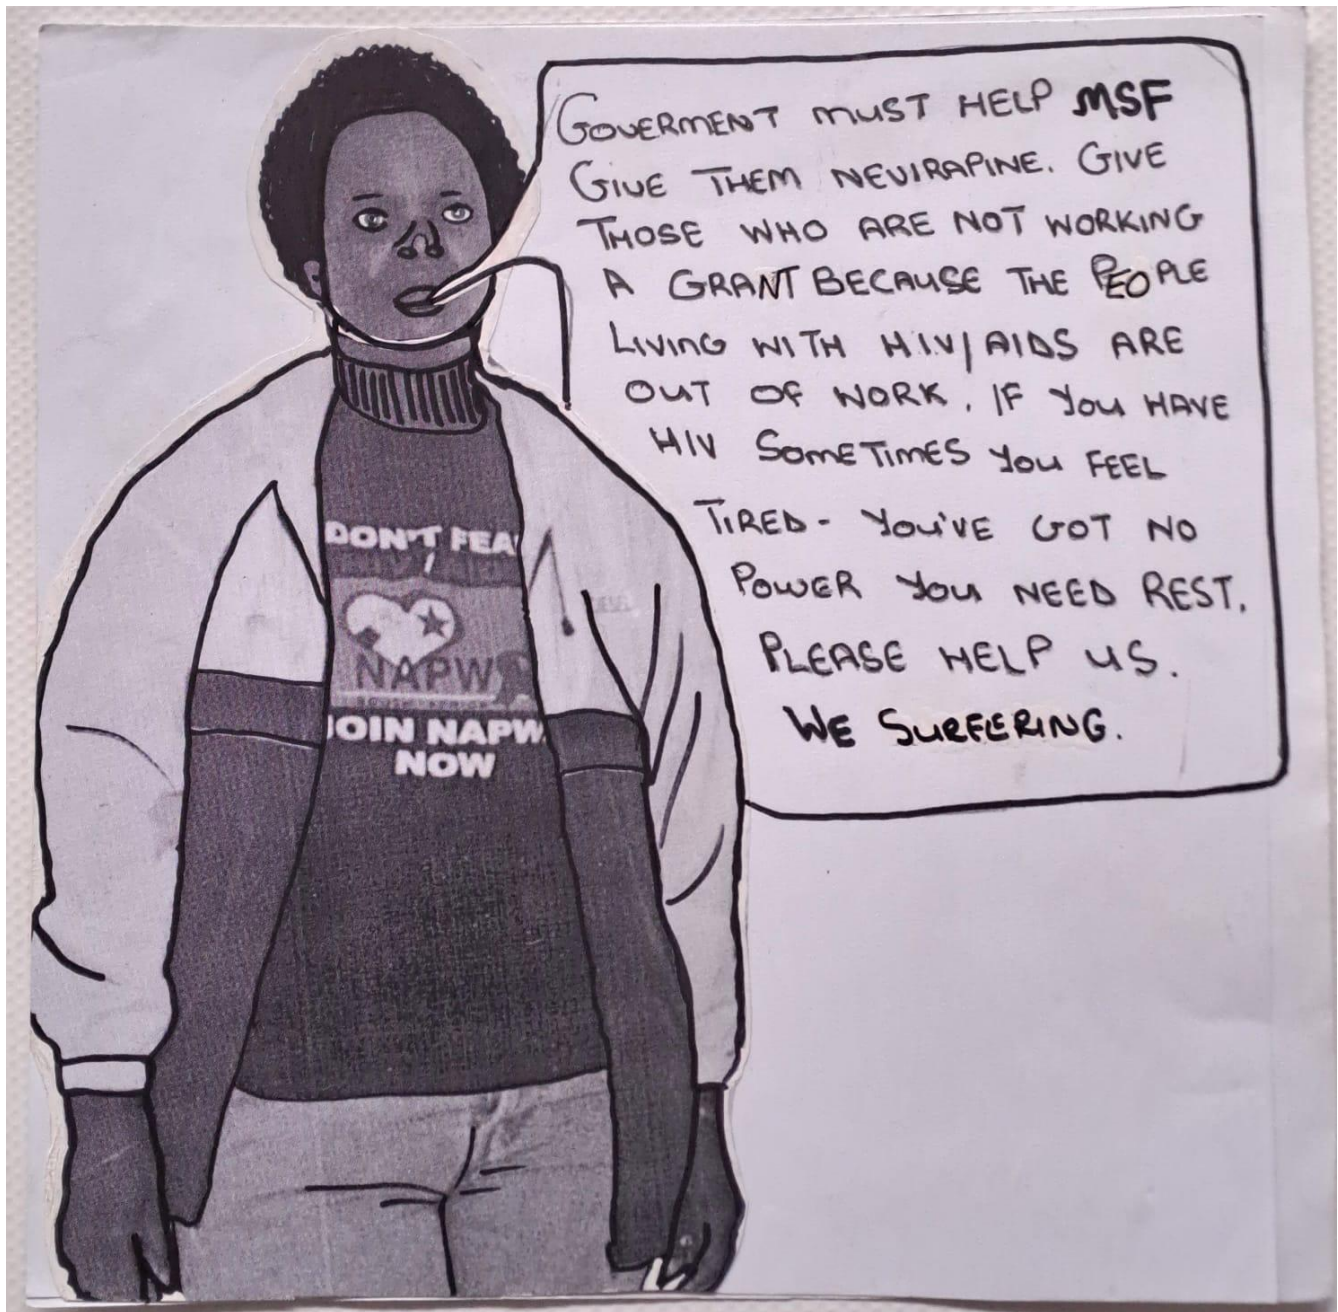 GOVERMENT MUST HELP MSF
GIVE THEM NEVIRAPINE. GIVE
THOSE WHO ARE NOT WORKING
A GRANT BECAUSE THE PEOPLE
LIVING WITH HIV/AIDS ARE
OUT OF WORK. IF YOU HAVE
HIV SOMETIMES YOU FEEL
TIRED - YOU'VE GOT NO
POWER YOU NEED REST.
PLEASE HELP US.
WE SURFERING.
DON'T FEA
NAPW
JOIN NAPW
NOW